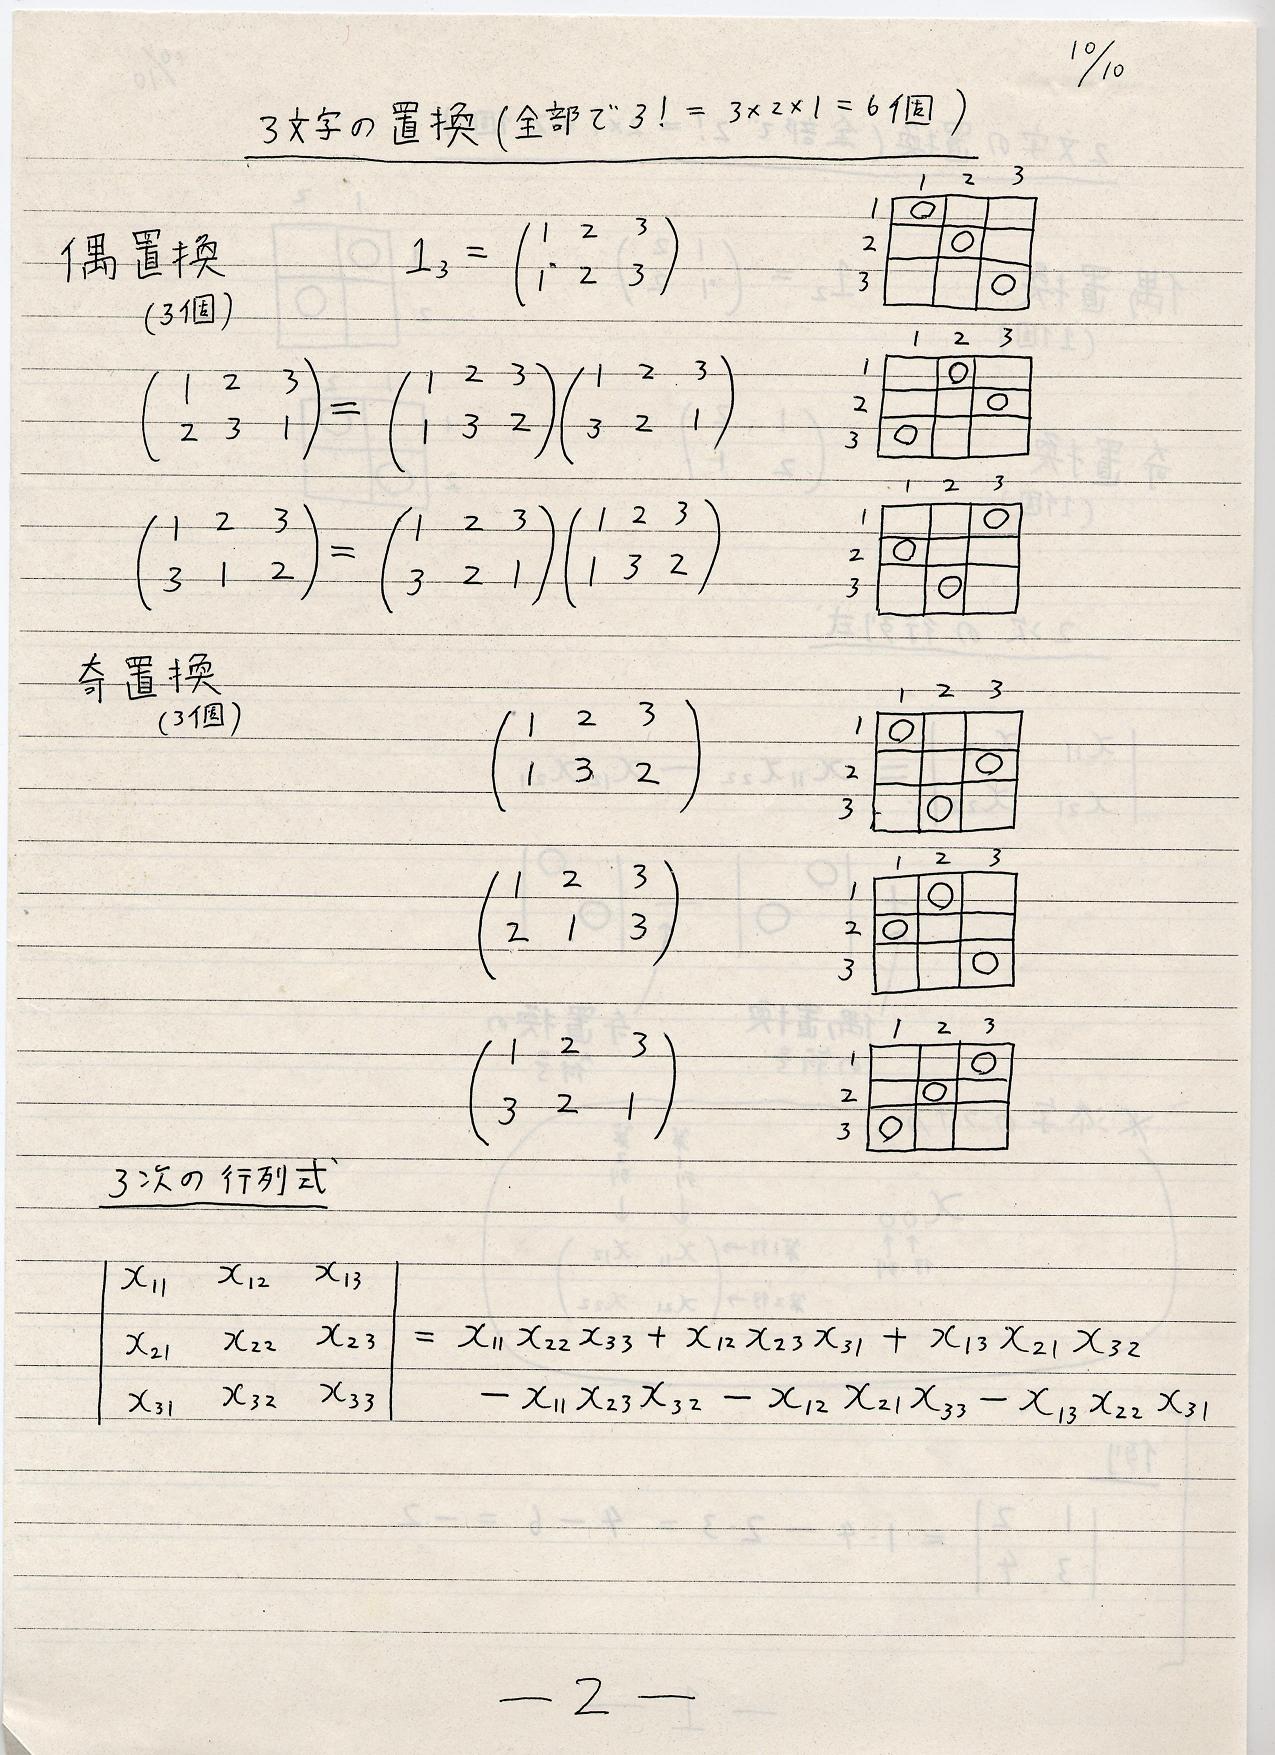 10/10
3文字の置換(全部で3! = 3×2×1 = 6個)
偶置換
(3個)
1₃ = (1 2 3 / 1 2 3)
1 2 3
1 ○
2 ○
3 ○
(1 2 3 / 2 3 1) = (1 2 3 / 1 3 2)(1 2 3 / 3 2 1)
1 2 3
1 ○
2 ○
3 ○
(1 2 3 / 3 1 2) = (1 2 3 / 3 2 1)(1 2 3 / 1 3 2)
1 2 3
1 ○
2 ○
3 ○
奇置換
(3個)
(1 2 3 / 1 3 2)
1 2 3
1 ○
2 ○
3 ○
(1 2 3 / 2 1 3)
1 2 3
1 ○
2 ○
3 ○
(1 2 3 / 3 2 1)
1 2 3
1 ○
2 ○
3 ○
3次の行列式
|x₁₁ x₁₂ x₁₃|
|x₂₁ x₂₂ x₂₃| = x₁₁x₂₂x₃₃ + x₁₂x₂₃x₃₁ + x₁₃x₂₁x₃₂
|x₃₁ x₃₂ x₃₃| − x₁₁x₂₃x₃₂ − x₁₂x₂₁x₃₃ − x₁₃x₂₂x₃₁
— 2 —